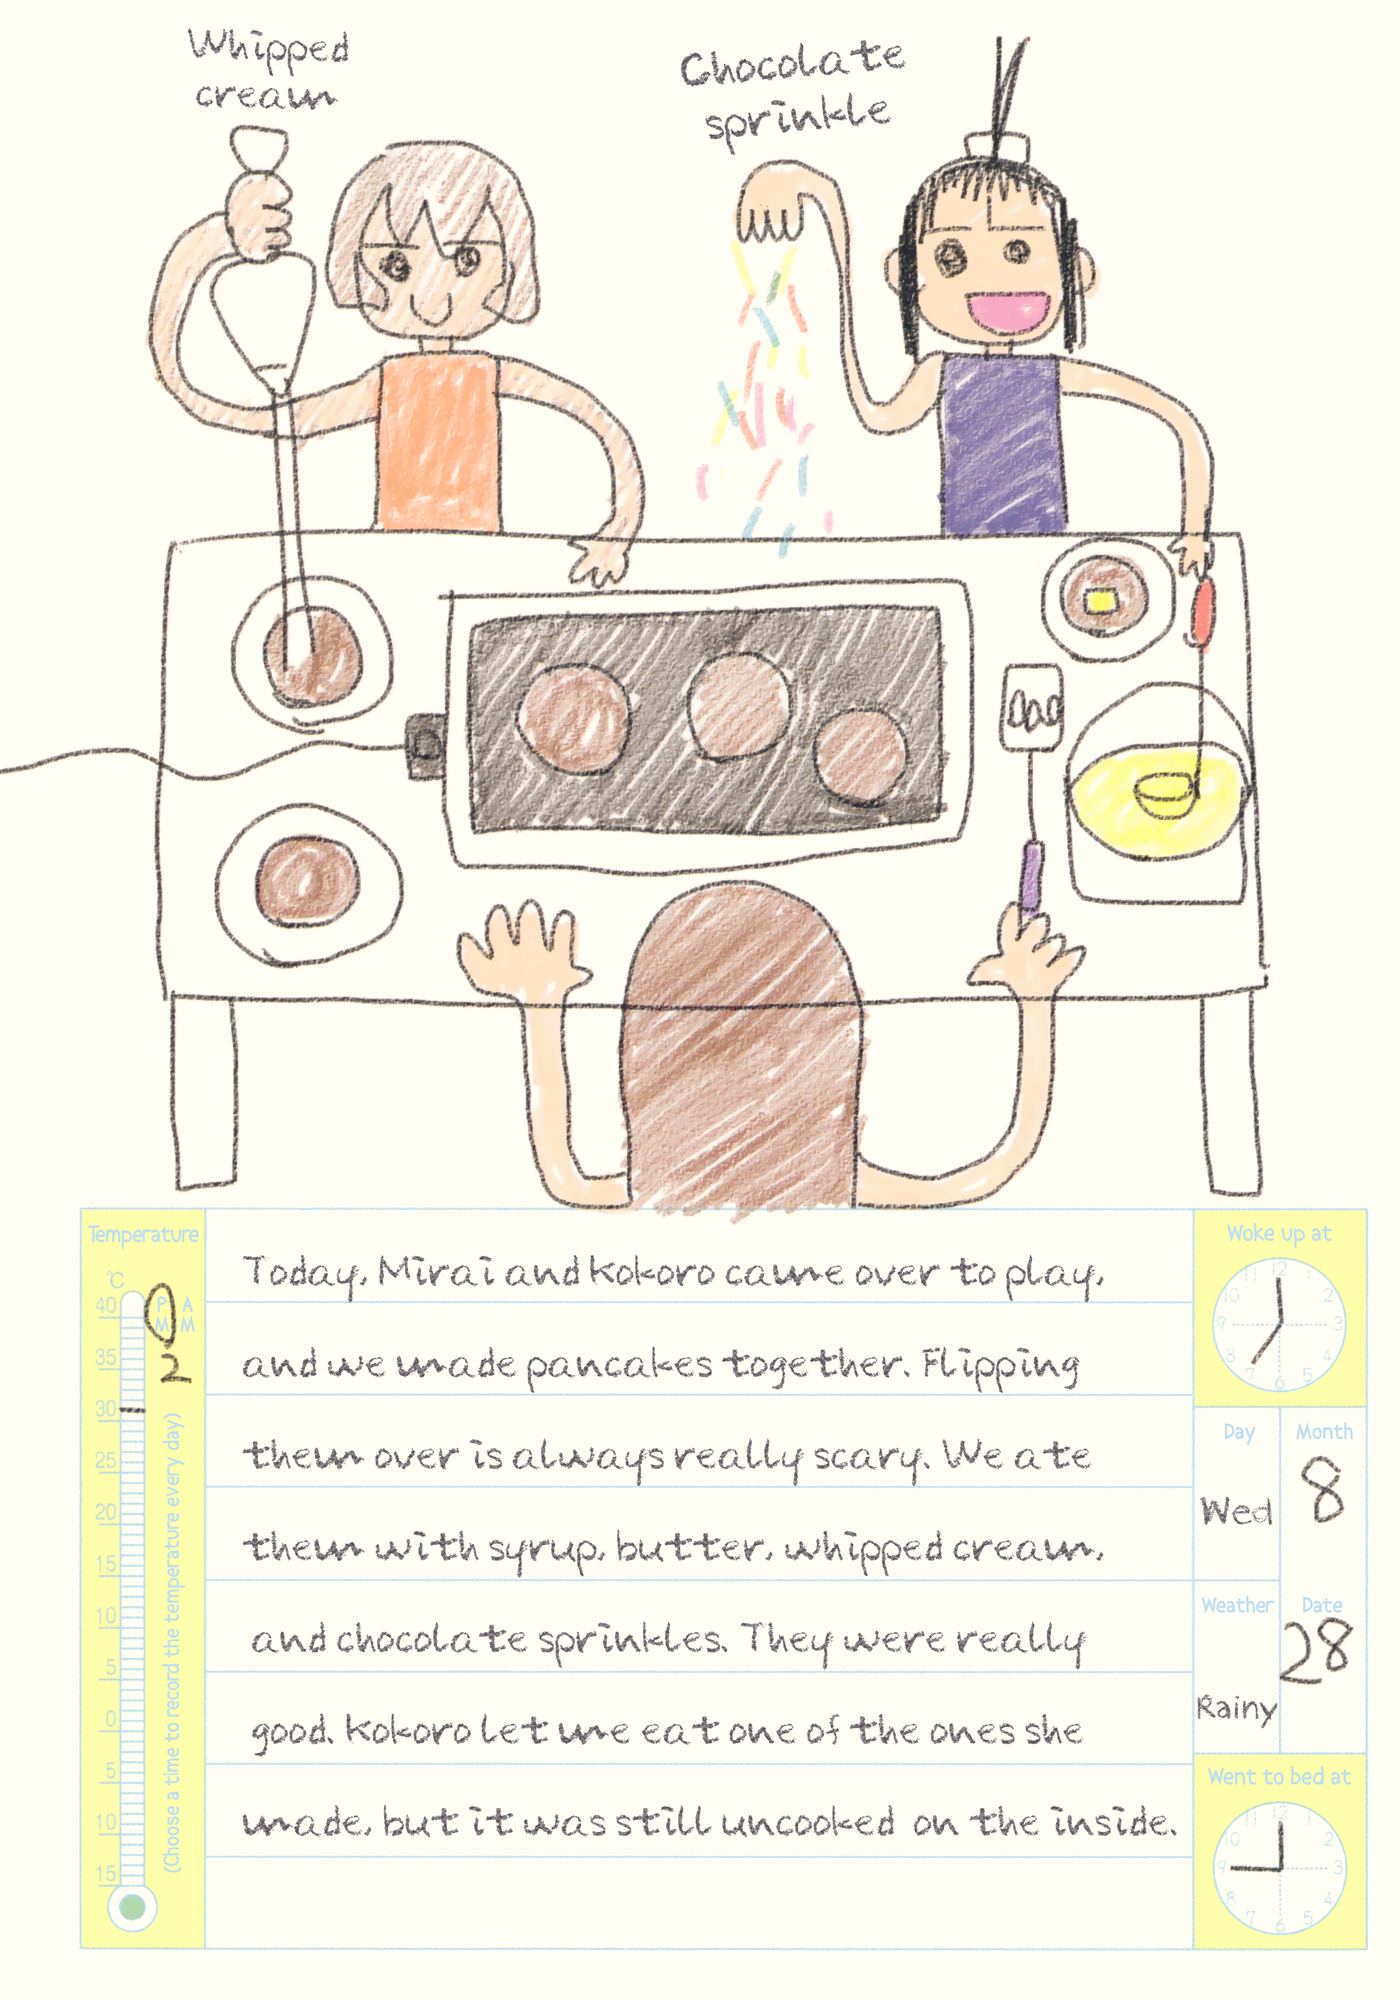 Whipped
cream
Chocolate
sprinkle
Temperature
℃
40
35
30
25
20
15
10
5
0
5
10
15
P M
A M
2
(Choose a time to record the temperature every day)
Today, Mirai and Kokoro came over to play,
and we made pancakes together. Flipping
them over is always really scary. We ate
them with syrup, butter, whipped cream,
and chocolate sprinkles. They were really
good. Kokoro let me eat one of the ones she
made, but it was still uncooked on the inside.
Woke up at
12
1
2
3
4
5
6
7
8
9
10
11
Day
Wed
Month
8
Weather
Rainy
Date
28
Went to bed at
12
1
2
3
4
5
6
7
8
9
10
11